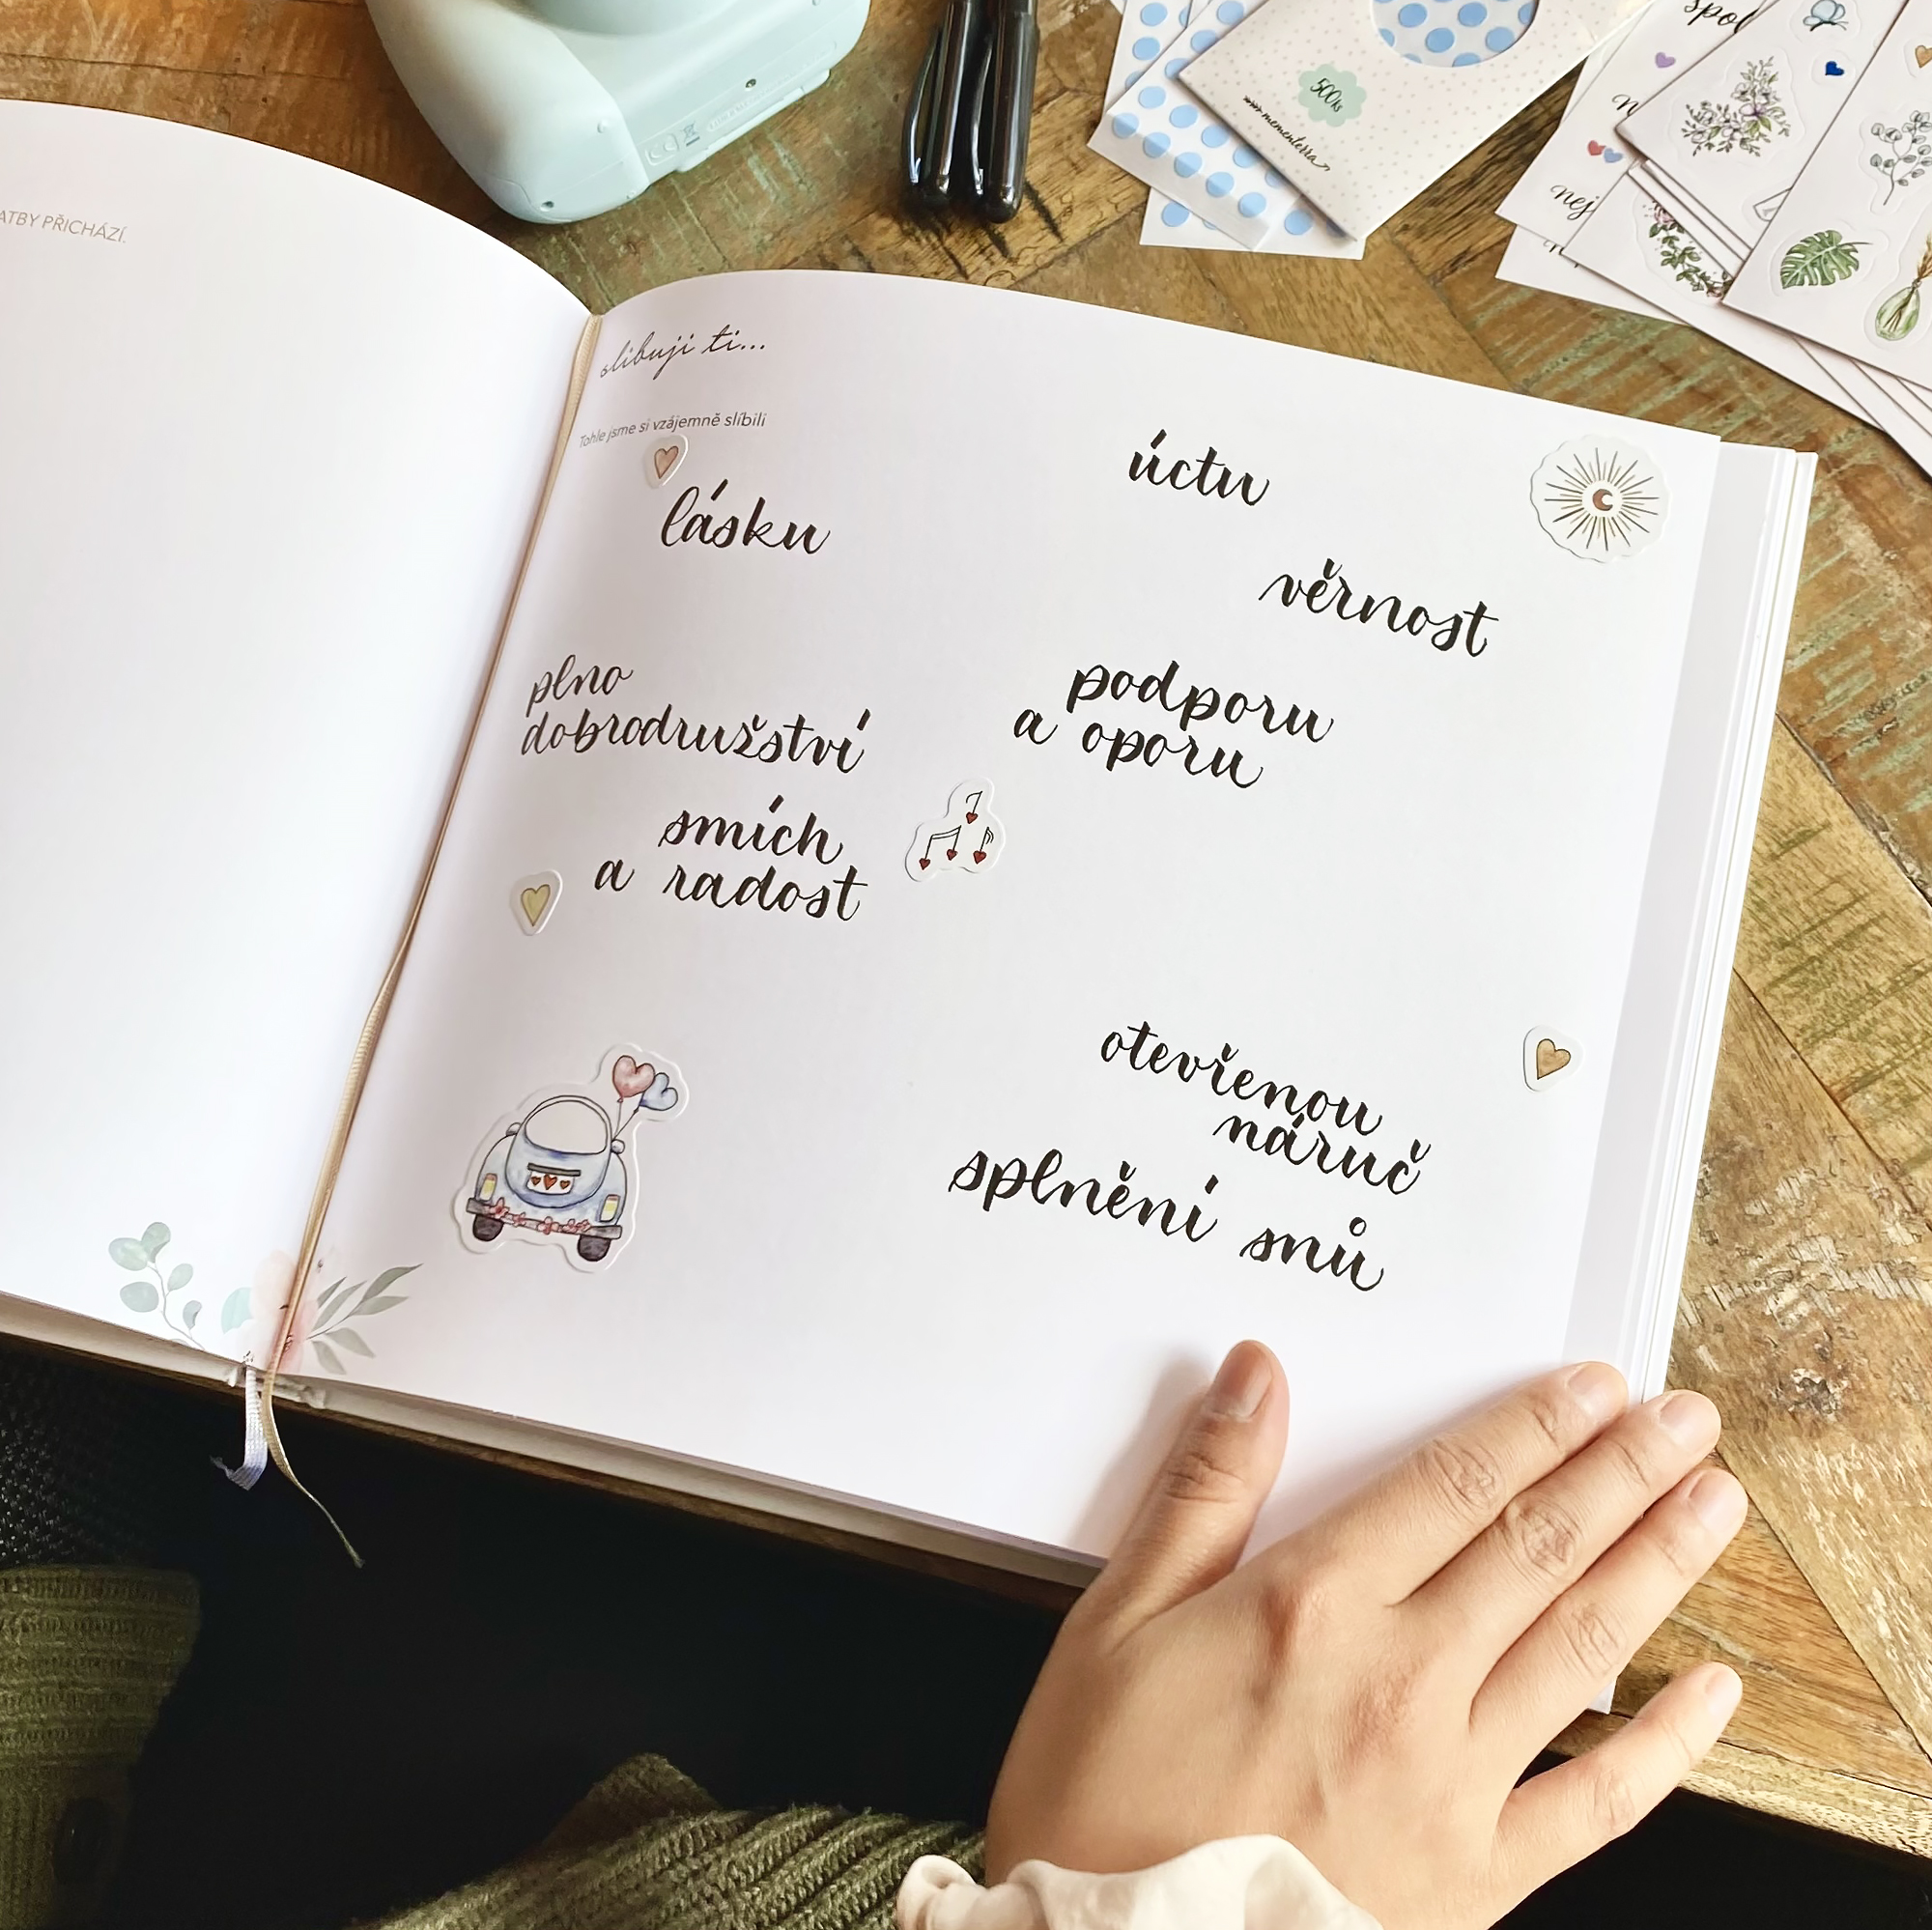 500ks
www.mementerra
nej
PŘICHÁZÍ.
slibuji ti...
Tohle jsme si vzájemně slíbili
lásku
úctu
věrnost
plno
dobrodružství
podporu
a oporu
smích
a radost
otevřenou
náruč
splnění snů